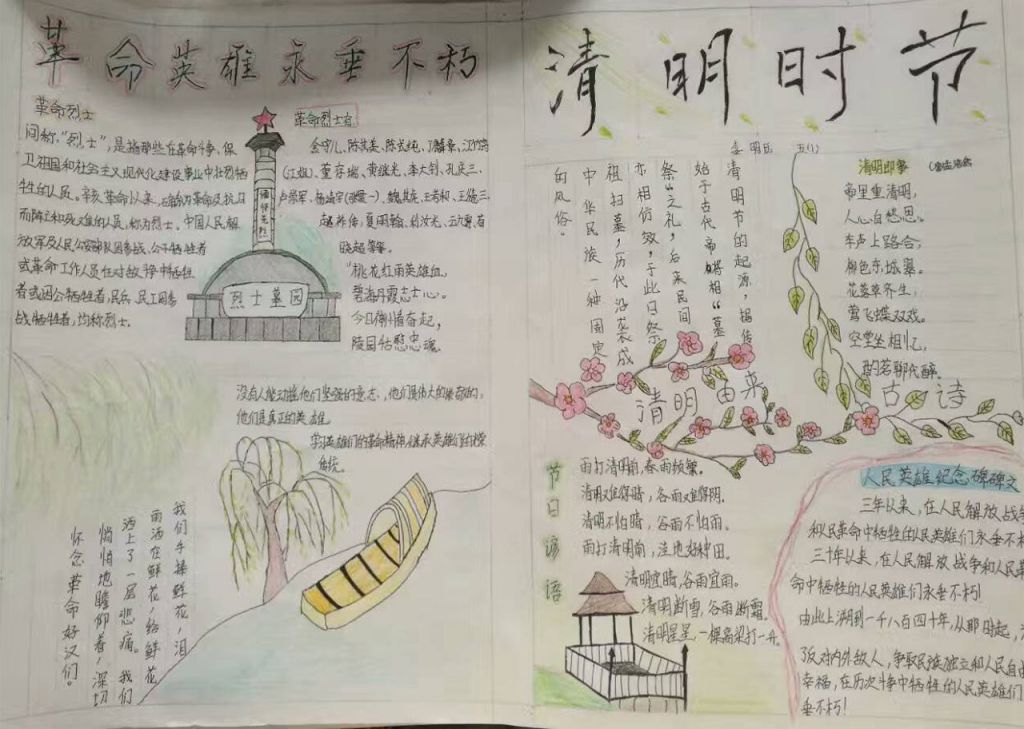 革命英雄永垂不朽
革命烈士
问称，“烈士”，是指那些在革命斗争、保
卫祖国和社会主义现代化建设事业中壮烈牺
牲的人员。辛亥革命以来，
而阵亡和死难的人员，称为烈士。中国人民解
放军及人民公安部队因参战、公干牺牲者
或革命工作人员在对敌斗争中牺牲
者或因公牺牲者，民兵、民工因参
战牺牲者，均称烈士。
缅怀先烈
烈士墓园
革命烈士名
陈其美、陈长纯、
(江姐)、董存瑞、黄继光、李大钊、
晓超等等。
“桃花红雨英雄血，
碧海丹霞志士心。
今日神州看奋起，
陵园千古慰忠魂。
没有人能动摇他们坚强的意志，他们是伟大的崇敬的，
他们是真正的英雄。
学英雄们的革命精神，继承英雄们的
传统。
我们手捧鲜花，泪
雨洒在鲜花，给鲜花
洒上了一层悲痛。我们
悄悄地瞻仰着，深切
怀念革命好汉们。
清明时节
五(1)
清明节的起源，据传
始于古代帝王将相“墓
祭”之礼，后来民间
亦相仿效，于此日祭
祖扫墓，历代沿袭成
中华民族一种固定
的风俗。
清明由来
清明即事
帝里重清明，
人心自愁思。
车声上路合，
柳色东城翠。
花落草齐生，
莺飞蝶双戏。
空堂坐相忆，
酌茗聊代醉。
古诗
节日谚语
雨打清明前，春雨频繁。
清明难得晴，谷雨难得阴。
清明不怕晴，谷雨不怕雨。
雨打清明前，洼地好种田。
清明宜晴，谷雨宜雨。
清明断雪，谷雨断霜。
清明星星，一棵高粱打一升。
人民英雄纪念碑碑文
三年以来，在人民解放战
和人民革命中牺牲的人民英雄们永垂不朽
三十年以来，在人民解放战争和人民革
命中牺牲的人民英雄们永垂不朽！
由此上溯到一千八百四十年，从那时起，
了反对内外敌人，争取民族独立和人民自由
幸福，在历次斗争中牺牲的人民英雄们
垂不朽！